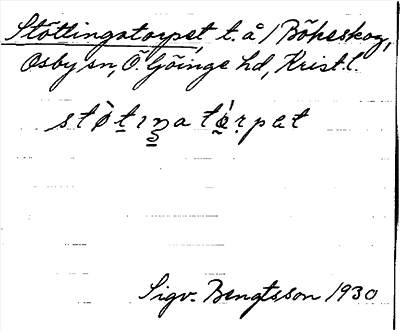 Stöttingstorpet t. å / Böheskog,
Osby sn, Ö. Göinge hd, Krist. l.
stö̀tıŋató̤rpet
Sigv. Bengtsson 1930